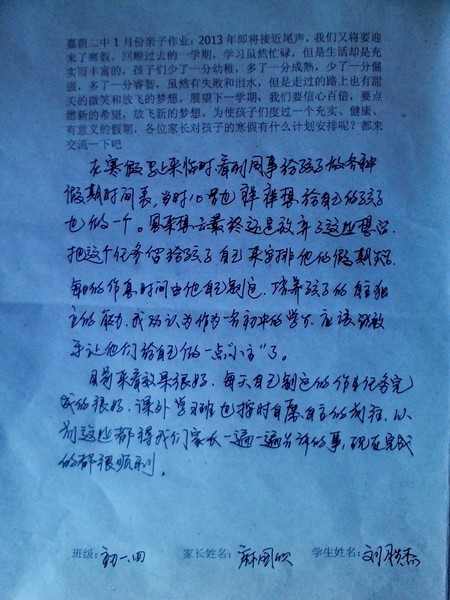 嘉荫二中1月份亲子作业：2013年即将接近尾声，我们又将要迎
来了寒假，回顾过去的一学期，学习虽然忙碌，但是生活却是充
实而丰富的，孩子们少了一分幼稚，多了一分成熟，少了一分倔
强，多了一分睿智，虽然有失败和泪水，但是走过的路上也有甜
美的微笑和放飞的梦想，展望下一学期，我们要信心百倍，要点
燃新的希望，放飞新的梦想，为使孩子们度过一个充实、健康、
有意义的假期，各位家长对孩子的寒假有什么计划安排呢？都来
交流一下吧
在寒假马上来临时看到同事给孩子做各种
假期时间表，当时心里也痒痒想给自己的孩子
也做一个。思来想去最终还是放弃了这些想法，
把这个任务留给孩子自己来安排他的假期
每日的作息时间由他自己制定，培养孩子的自主独
立的能力，我认为作为一名初中的学生应该
让他们给自己做一点小"主"了。
目前来看效果很好，每天自己制定的作业任务完
成的很好，课外学习班也按时自愿自主的前往，以
前这些都得我们家长一遍一遍告诉的事，现在完成
的都很顺利。
班级：初一.四 家长姓名： 学生姓名：刘